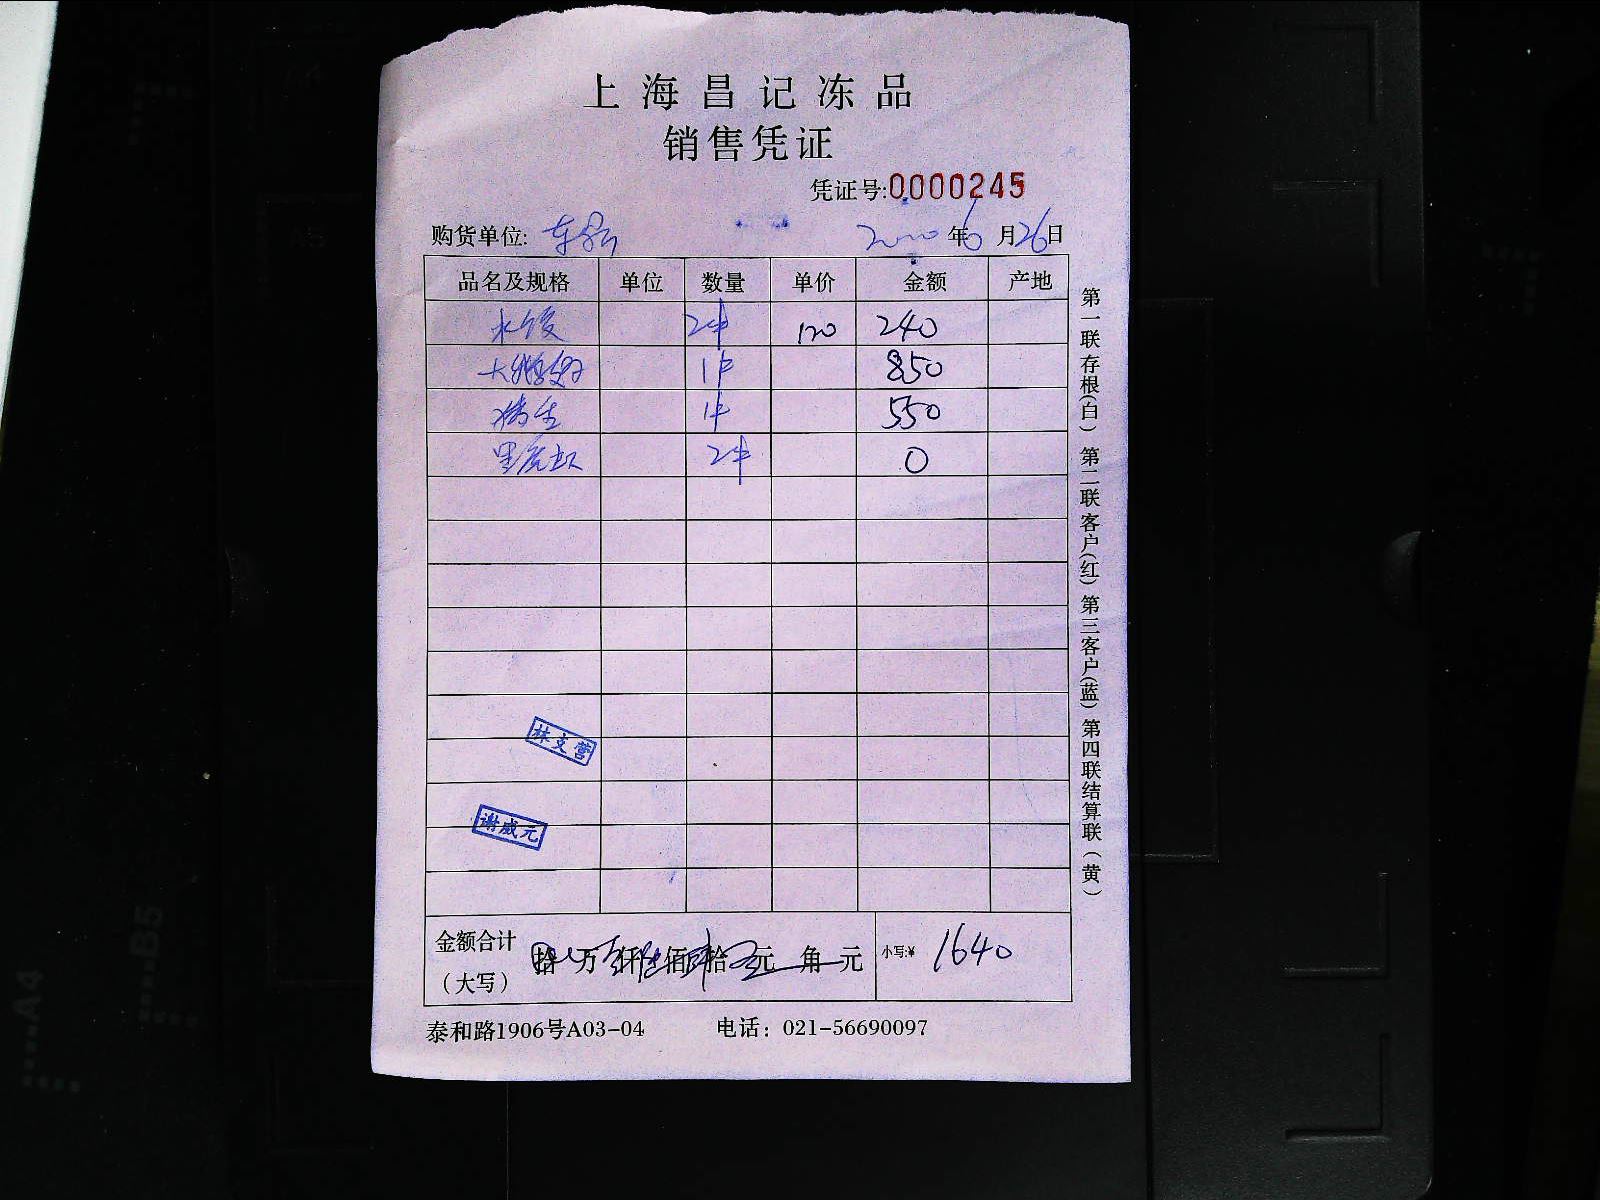 上海昌记冻品
销售凭证
凭证号:0000245
购货单位: 2020年6月26日
品名及规格 单位 数量 单价 金额 产地
水饺 2件 120 240
大鹅翅 1件 850
1件 550
黑虎虾 2件 0
林支营
谢威元
金额合计(大写) 拾 万 仟 佰 拾 元 角 元 小写:¥ 1640
泰和路1906号A03-04 电话：021-56690097
第一联存根(白) 第二联客户(红) 第三客户(蓝) 第四联结算联(黄)